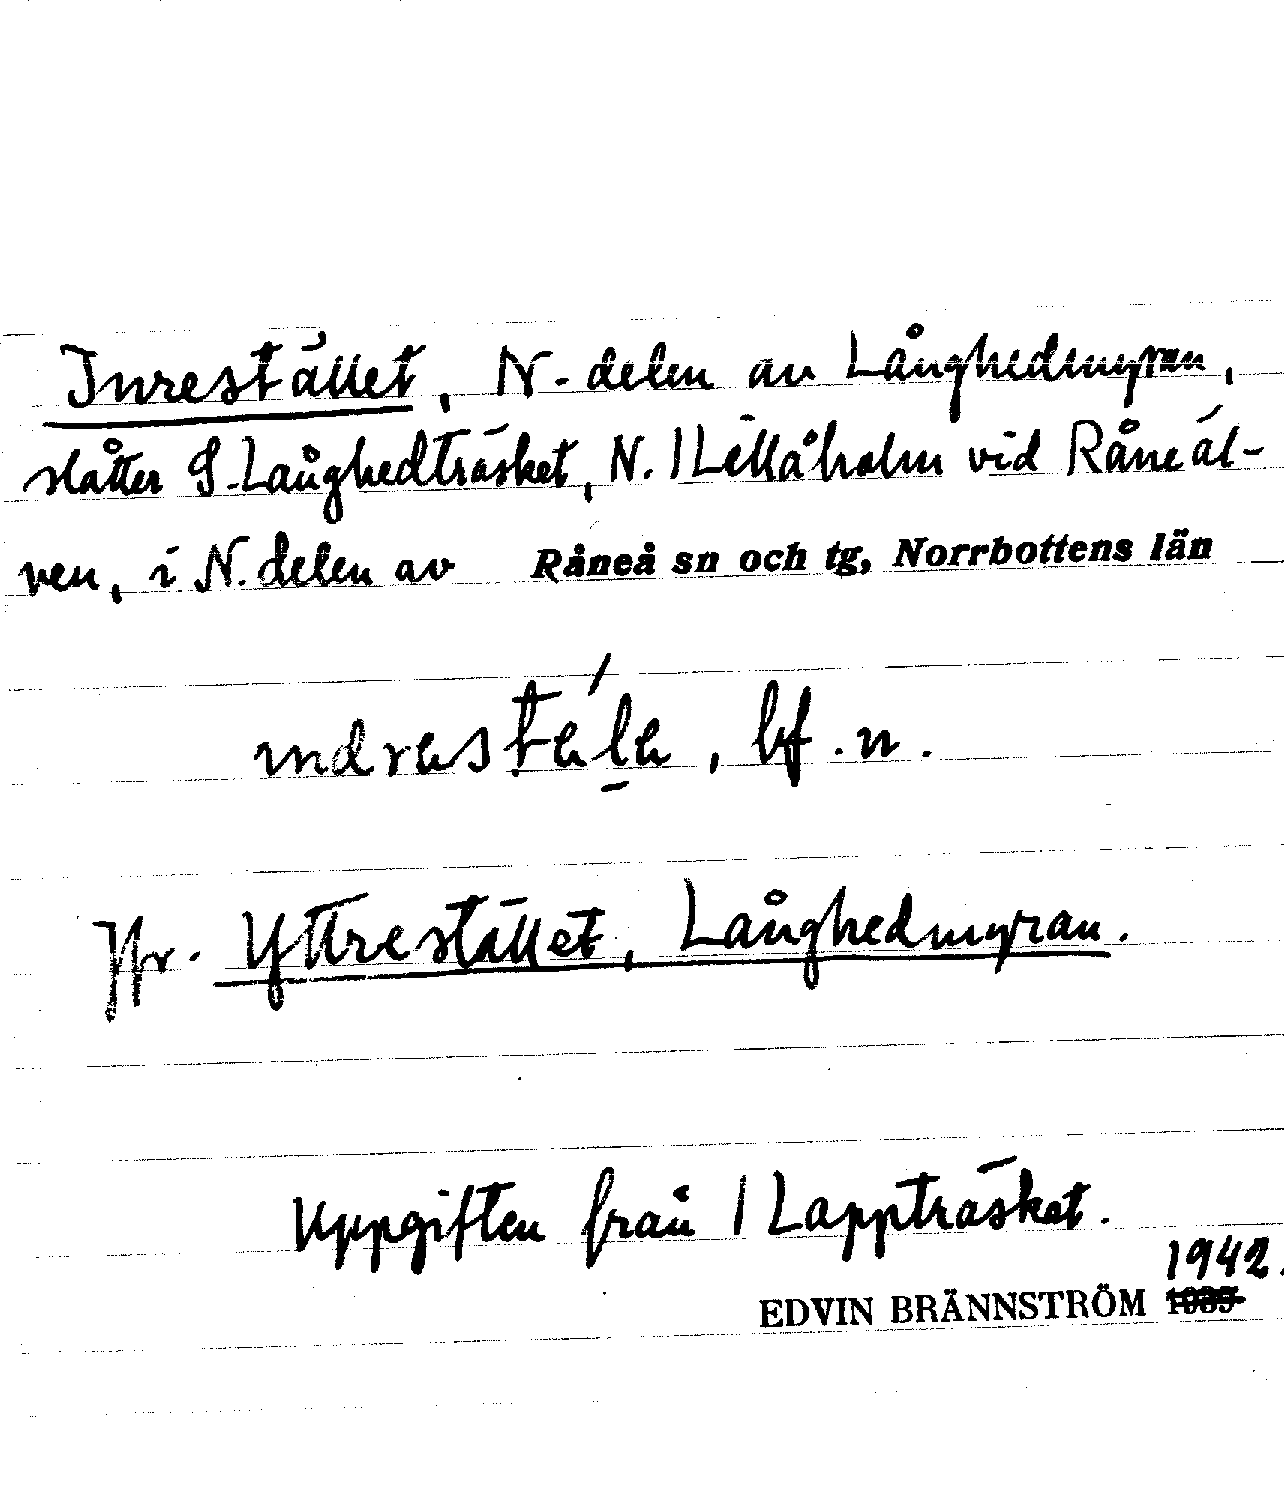 Inrestället, N-delen av Långhedmyran,
slåtter S.Långhedträsket, N. I Lillåholm vid Råneäl-
ven, i N. delen av Råneå sn och tg, Norrbottens län
bf. n.
Jfr. Yttrestället, Långhedmyran.
Uppgiften från I Lappträsket.
1942.
EDVIN BRÄNNSTRÖM 1935